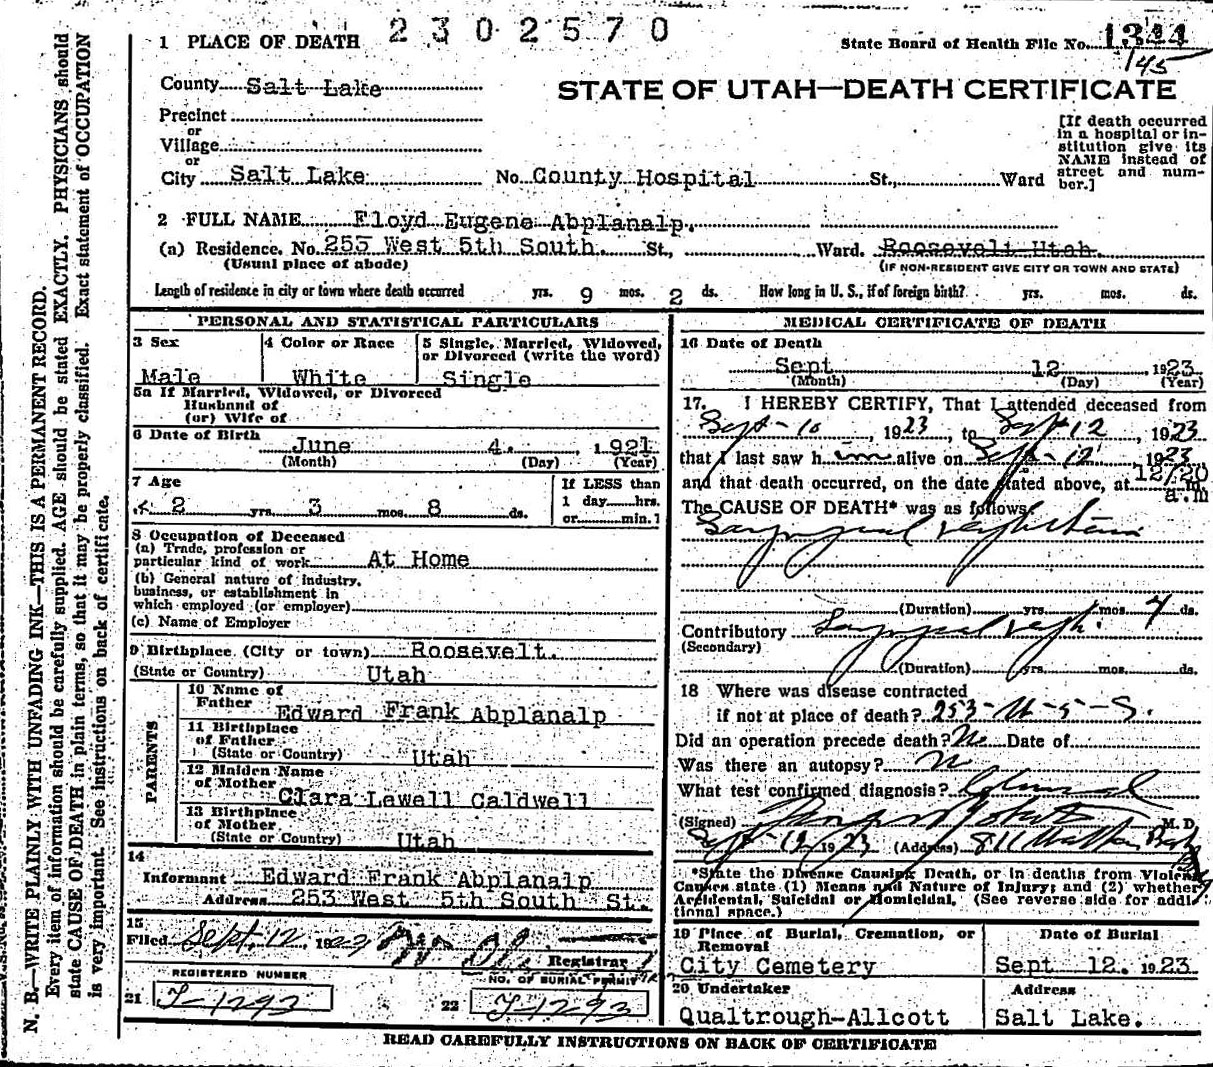 2302570
1 PLACE OF DEATH
State Board of Health File No. 1344
145
County Salt Lake
STATE OF UTAH—DEATH CERTIFICATE
Precinct
or
Village
or
City Salt Lake No. County Hospital St., Ward
[If death occurred
in a hospital or in-
stitution give its
NAME instead of
street and num-
ber.]
2 FULL NAME Floyd Eugene Abplanalp.
(a) Residence. No. 253 West 5th South. St., Ward. Roosevelt Utah.
(Usual place of abode) (IF NON-RESIDENT GIVE CITY OR TOWN AND STATE)
Length of residence in city or town where death occurred yrs. 9 mos. 2 ds. How long in U. S., if of foreign birth? yrs. mos. ds.
PERSONAL AND STATISTICAL PARTICULARS
3 Sex 4 Color or Race 5 Single, Married, Widowed,
or Divorced (write the word)
Male White Single
5a If Married, Widowed, or Divorced
Husband of
(or) Wife of
6 Date of Birth June 4. 1921
(Month) (Day) (Year)
7 Age If LESS than
2 yrs. 3 mos. 8 ds. 1 day hrs.
or min.?
8 Occupation of Deceased
(a) Trade, profession or
particular kind of work At Home
(b) General nature of industry,
business, or establishment in
which employed (or employer)
(c) Name of Employer
9 Birthplace (City or town) Roosevelt.
(State or Country) Utah
PARENTS
10 Name of
Father Edward Frank Abplanalp
11 Birthplace
of Father
(State or Country) Utah
12 Maiden Name
of Mother Clara Lewell Caldwell
13 Birthplace
of Mother
(State or Country) Utah
14
Informant Edward Frank Abplanalp
Address 253 West 5th South St.
15
Filed Sept. 12 1923 Registrar
REGISTERED NUMBER NO. OF BURIAL PERMIT
21 J-1293 22 J-1293
MEDICAL CERTIFICATE OF DEATH
16 Date of Death
Sept 12 1923
(Month) (Day) (Year)
17. I HEREBY CERTIFY, That I attended deceased from
Sept-10, 1923, to Sept 12, 1923
that I last saw h im alive on Sept-12, 1923
and that death occurred, on the date stated above, at 12/20 a.m.
The CAUSE OF DEATH* was as follows:
Laryngeal Diphtheria
(Duration) yrs. mos. 4 ds.
Contributory Laryngeal
(Secondary)
(Duration) yrs. mos. ds.
18 Where was disease contracted
if not at place of death? 253-W-5-S.
Did an operation precede death? No Date of
Was there an autopsy? No
What test confirmed diagnosis? Clinical
(Signed) M. D.
Sept-12 1923 (Address) 811
*State the Disease Causing Death, or in deaths from Violent
Causes state (1) Means and Nature of Injury; and (2) whether
Accidental, Suicidal or Homicidal. (See reverse side for addi-
tional space.)
19 Place of Burial, Cremation, or
Removal Date of Burial
City Cemetery Sept 12. 1923
20 Undertaker Address
Qualtrough-Allcott Salt Lake.
READ CAREFULLY INSTRUCTIONS ON BACK OF CERTIFICATE
N. B.—WRITE PLAINLY WITH UNFADING INK—THIS IS A PERMANENT RECORD.
Every item of information should be carefully supplied. AGE should be stated EXACTLY. PHYSICIANS should
state CAUSE OF DEATH in plain terms, so that it may be properly classified. Exact statement of OCCUPATION
is very important. See instructions on back of certificate.